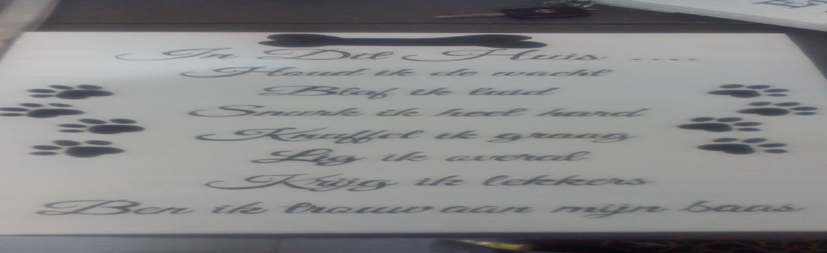 In Dit Huis ....
Houd ik de wacht
Blaf ik luid
Snurk ik heel hard
Knuffel ik graag
Lig ik overal
Krijg ik lekkers
Ben ik trouw aan mijn baas